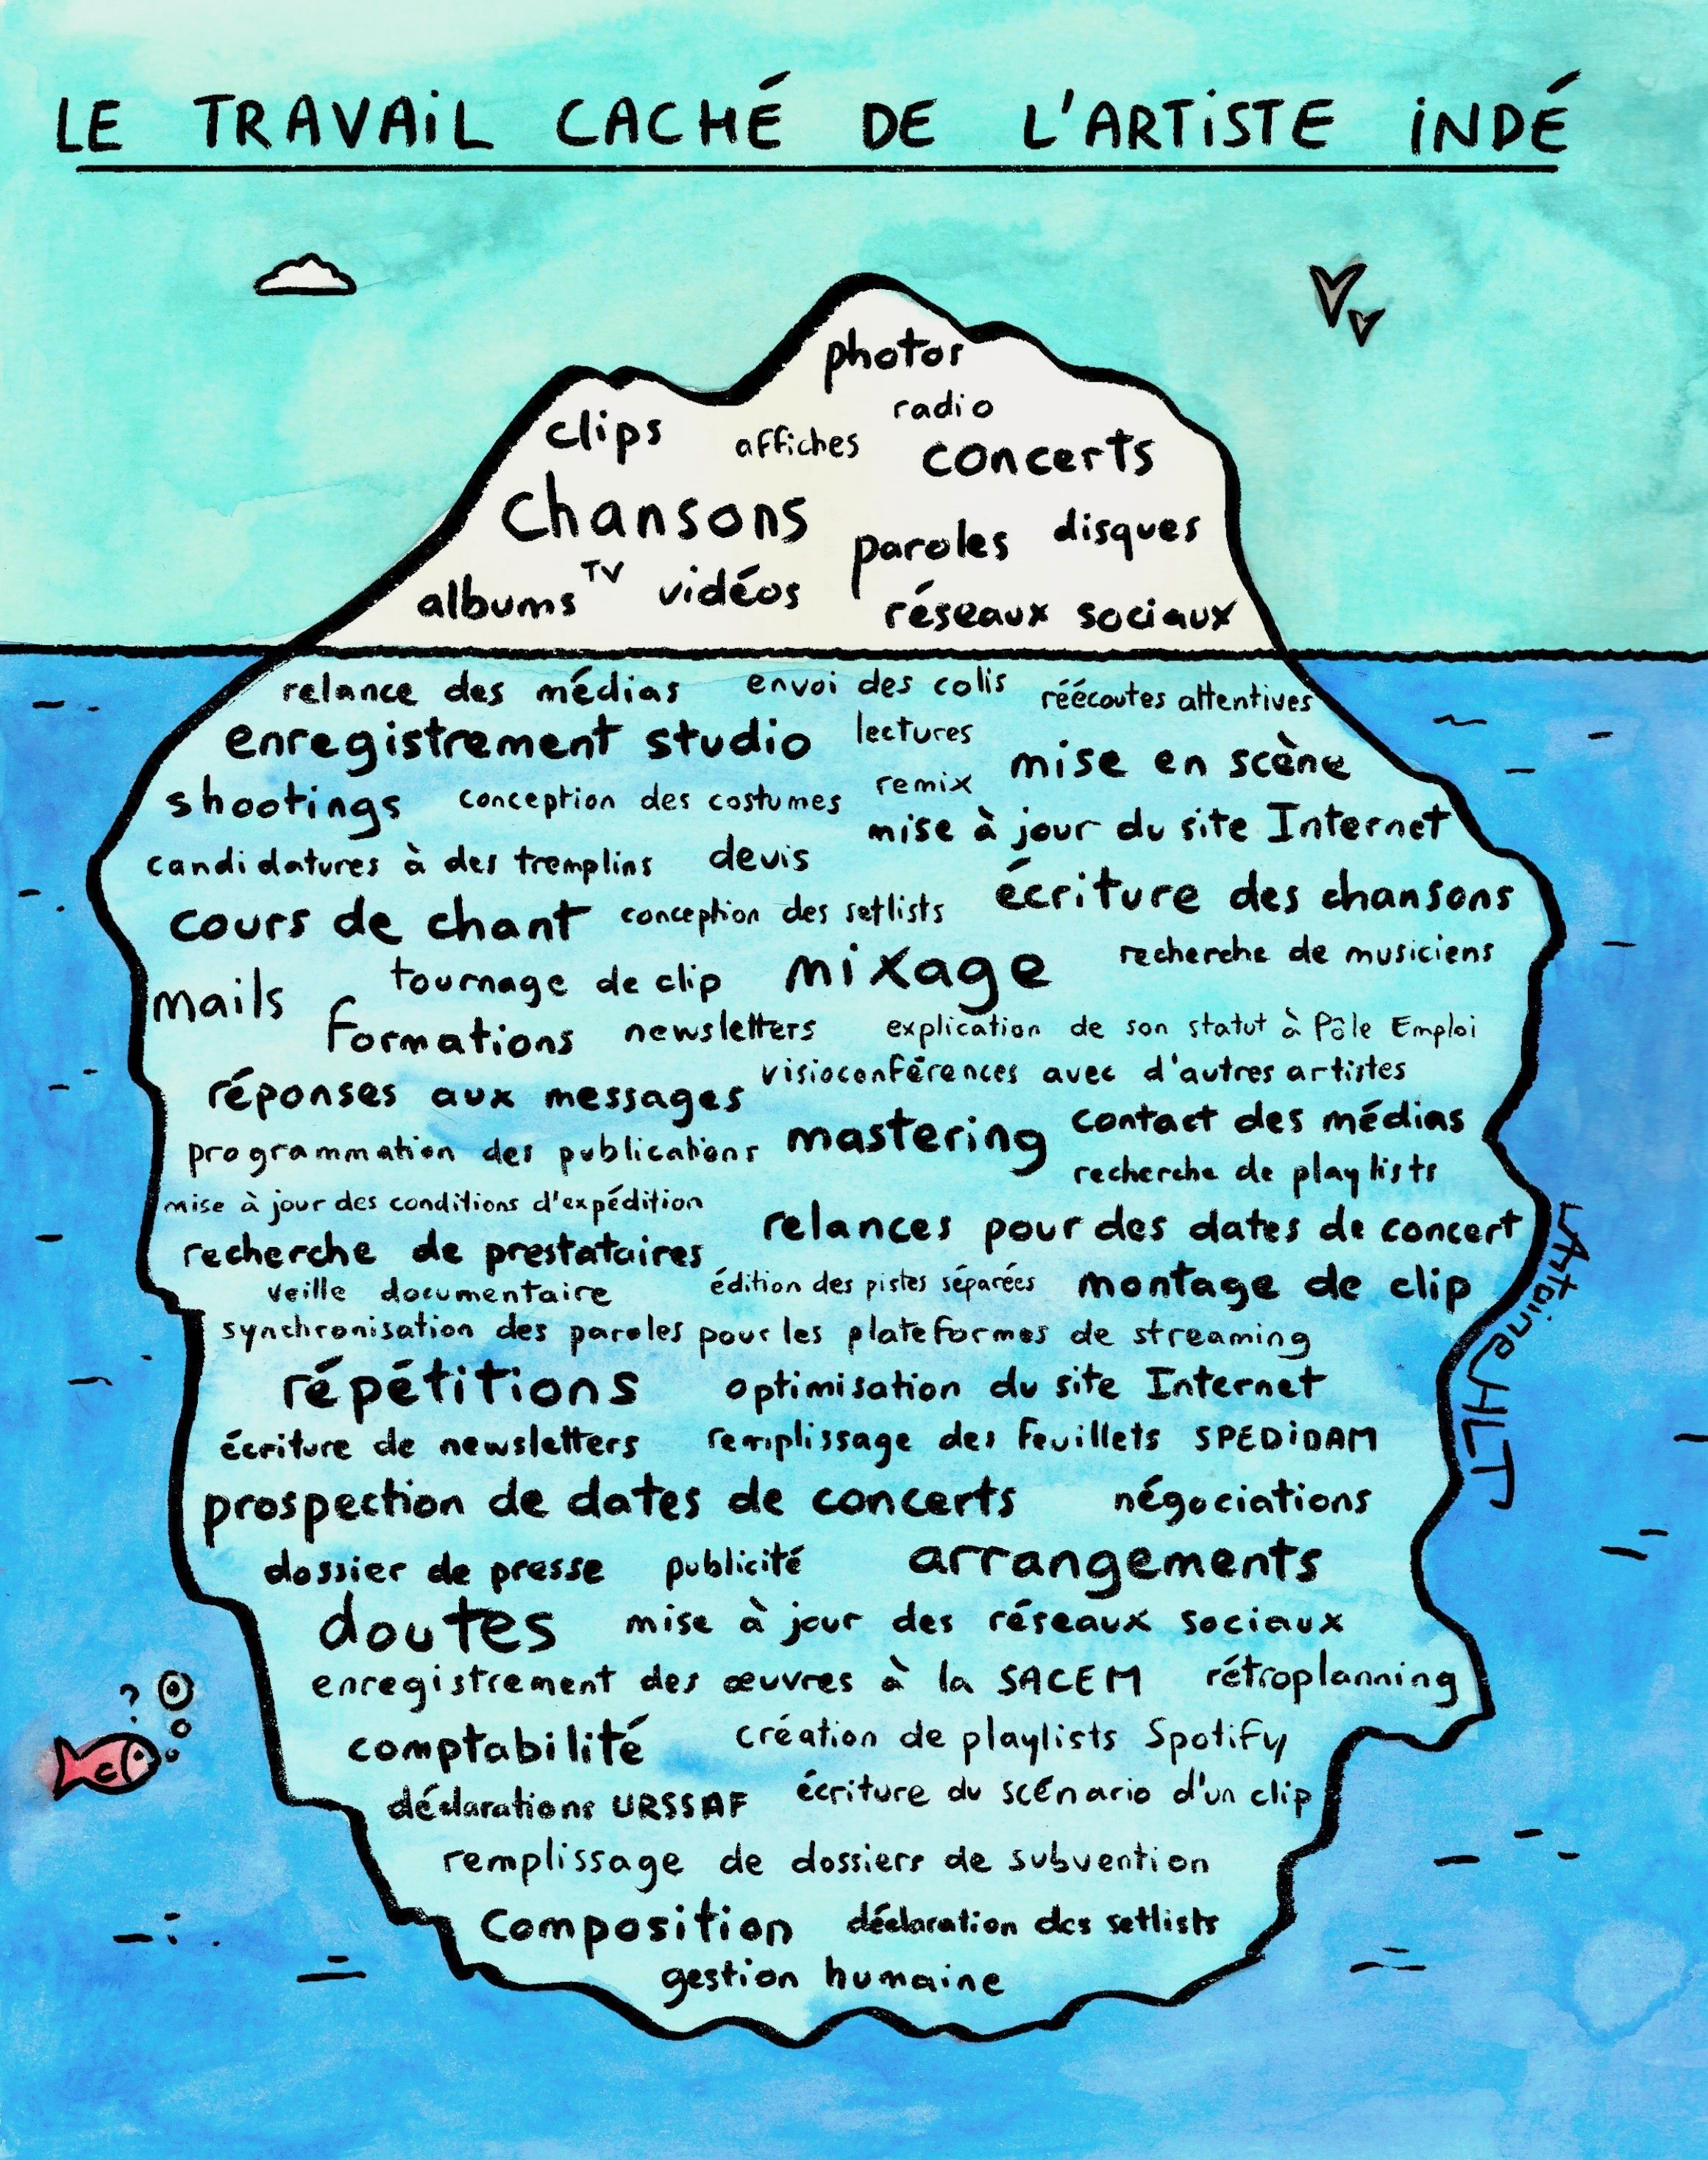 LE TRAVAiL CACHÉ DE L'ARTiSTE iNDÉ
photos
radio
clips affiches concerts
chansons paroles disques
TV
albums vidéos réseaux sociaux
relance des médias envoi des colis réécoutes attentives
enregistrement studio lectures mise en scène
shootings conception des costumes remix
mise à jour du site Internet
candidatures à des tremplins devis
cours de chant conception des setlists écriture des chansons
mails tournage de clip mixage recherche de musiciens
formations newsletters explication de son statut à Pôle Emploi
réponses aux messages visioconférences avec d'autres artistes
programmation des publications mastering contact des médias
recherche de playlists
mise à jour des conditions d'expédition
recherche de prestataires relances pour des dates de concert
veille documentaire édition des pistes séparées montage de clip
synchronisation des paroles pour les plateformes de streaming
répétitions optimisation du site Internet
écriture de newsletters remplissage des feuillets SPEDiDAM
prospection de dates de concerts négociations
dossier de presse publicité arrangements
doutes mise à jour des réseaux sociaux
enregistrement des œuvres à la SACEM rétroplanning
comptabilité création de playlists Spotify
déclarations URSSAF écriture du scénario d'un clip
remplissage de dossiers de subvention
composition déclaration des setlists
gestion humaine
?